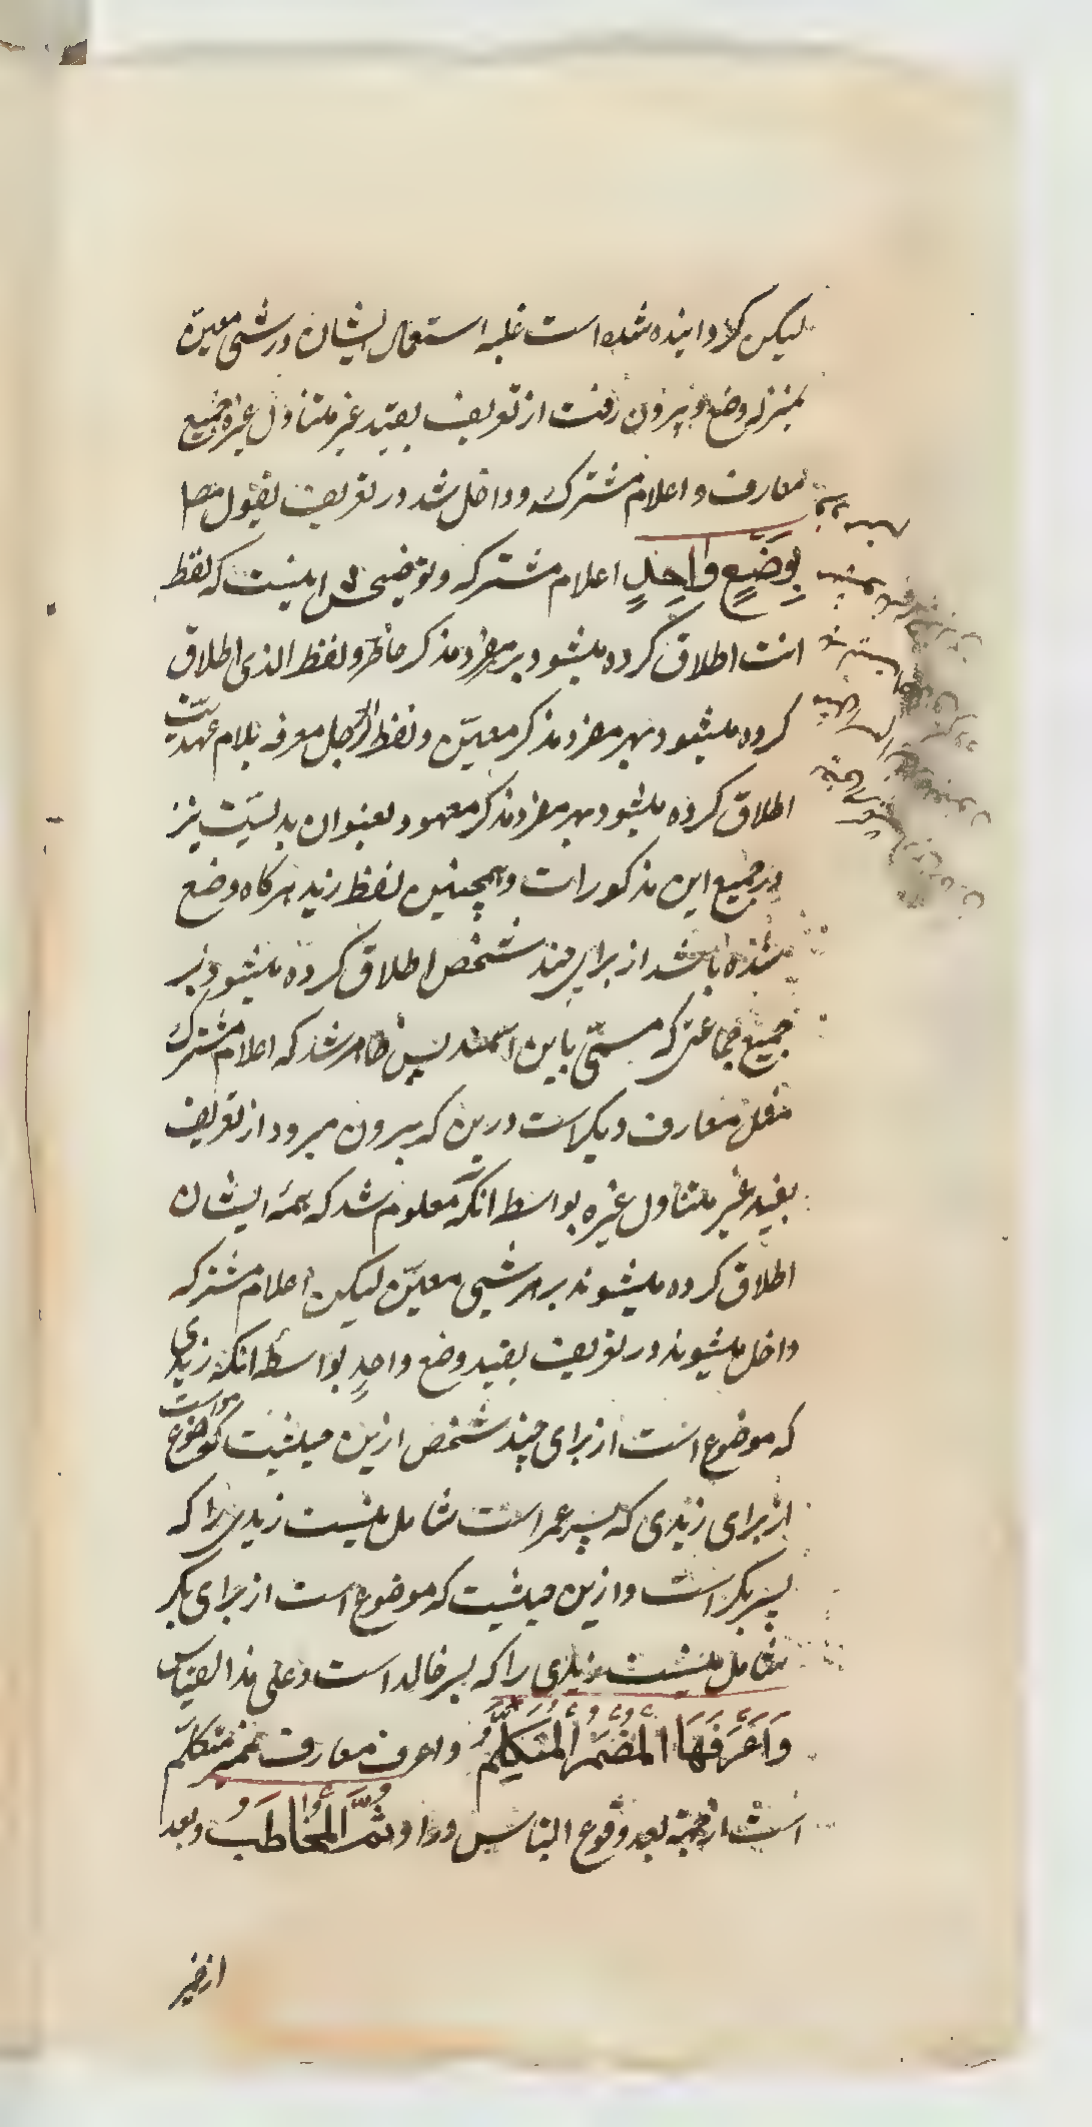 لیکن کردانیده شده است غلبه استعمال ایشان در شئی معیّن
بمنزله وضع و بیرون رفت از تعریف بقید غیر متناول غیره جمیع
معارف و اعلام مشترکه و داخل شد در تعریف بقول مص
بِوَضْعٍ وَاحِدٍ اعلام مشترکه و توضیحش اینست که لفظ
انت اطلاق کرده میشود بر هر مفرد مذکر مخاطب و لفظ الذی اطلاق
کرده میشود بهر مفرد مذکر معیّن و لفظ الرجل معرفه بلام عهدیّت
اطلاق کرده میشود بهر مفرد مذکر معهود بعنوان بدلیّت نیز
در جمیع این مذکورات و همچنین لفظ زید هرکاه وضع
شده باشد از برای چند شخص اطلاق کرده میشود بر
جمیع جماعتی که مسمّی باین اسمند پس ظاهر شد که اعلام مشترکه
مثل معارف دیکر است درین که بیرون میرود از تعریف
بقید غیر متناول غیره بواسطه انکه معلوم شد که همهٔ ایشان
اطلاق کرده میشوند بر هر شیئی معیّن لیکن اعلام مشترکه
داخل میشوند در تعریف بقید وضع واحدٍ بواسطه انکه زیدی
که موضوع است از برای چند شخص ازین حیثیت که موضوع است
از برای زیدی که پسر عمر است شامل نیست زیدی را که
پسر بکر است و ازین حیثیت که موضوع است از برای بکر
شامل نیست زیدی را که پسر خالد است و علی هذا القیاس
وَاَعْرَفُهَا الْمُضْمَرُ الْمُتَكَلِّمُ و اعرف معارف ضمیر متکلّم
است از جهة بعد وقوع التباس در او ثُمَّ الْمُخَاطَبُ و بعد
از ضمیر